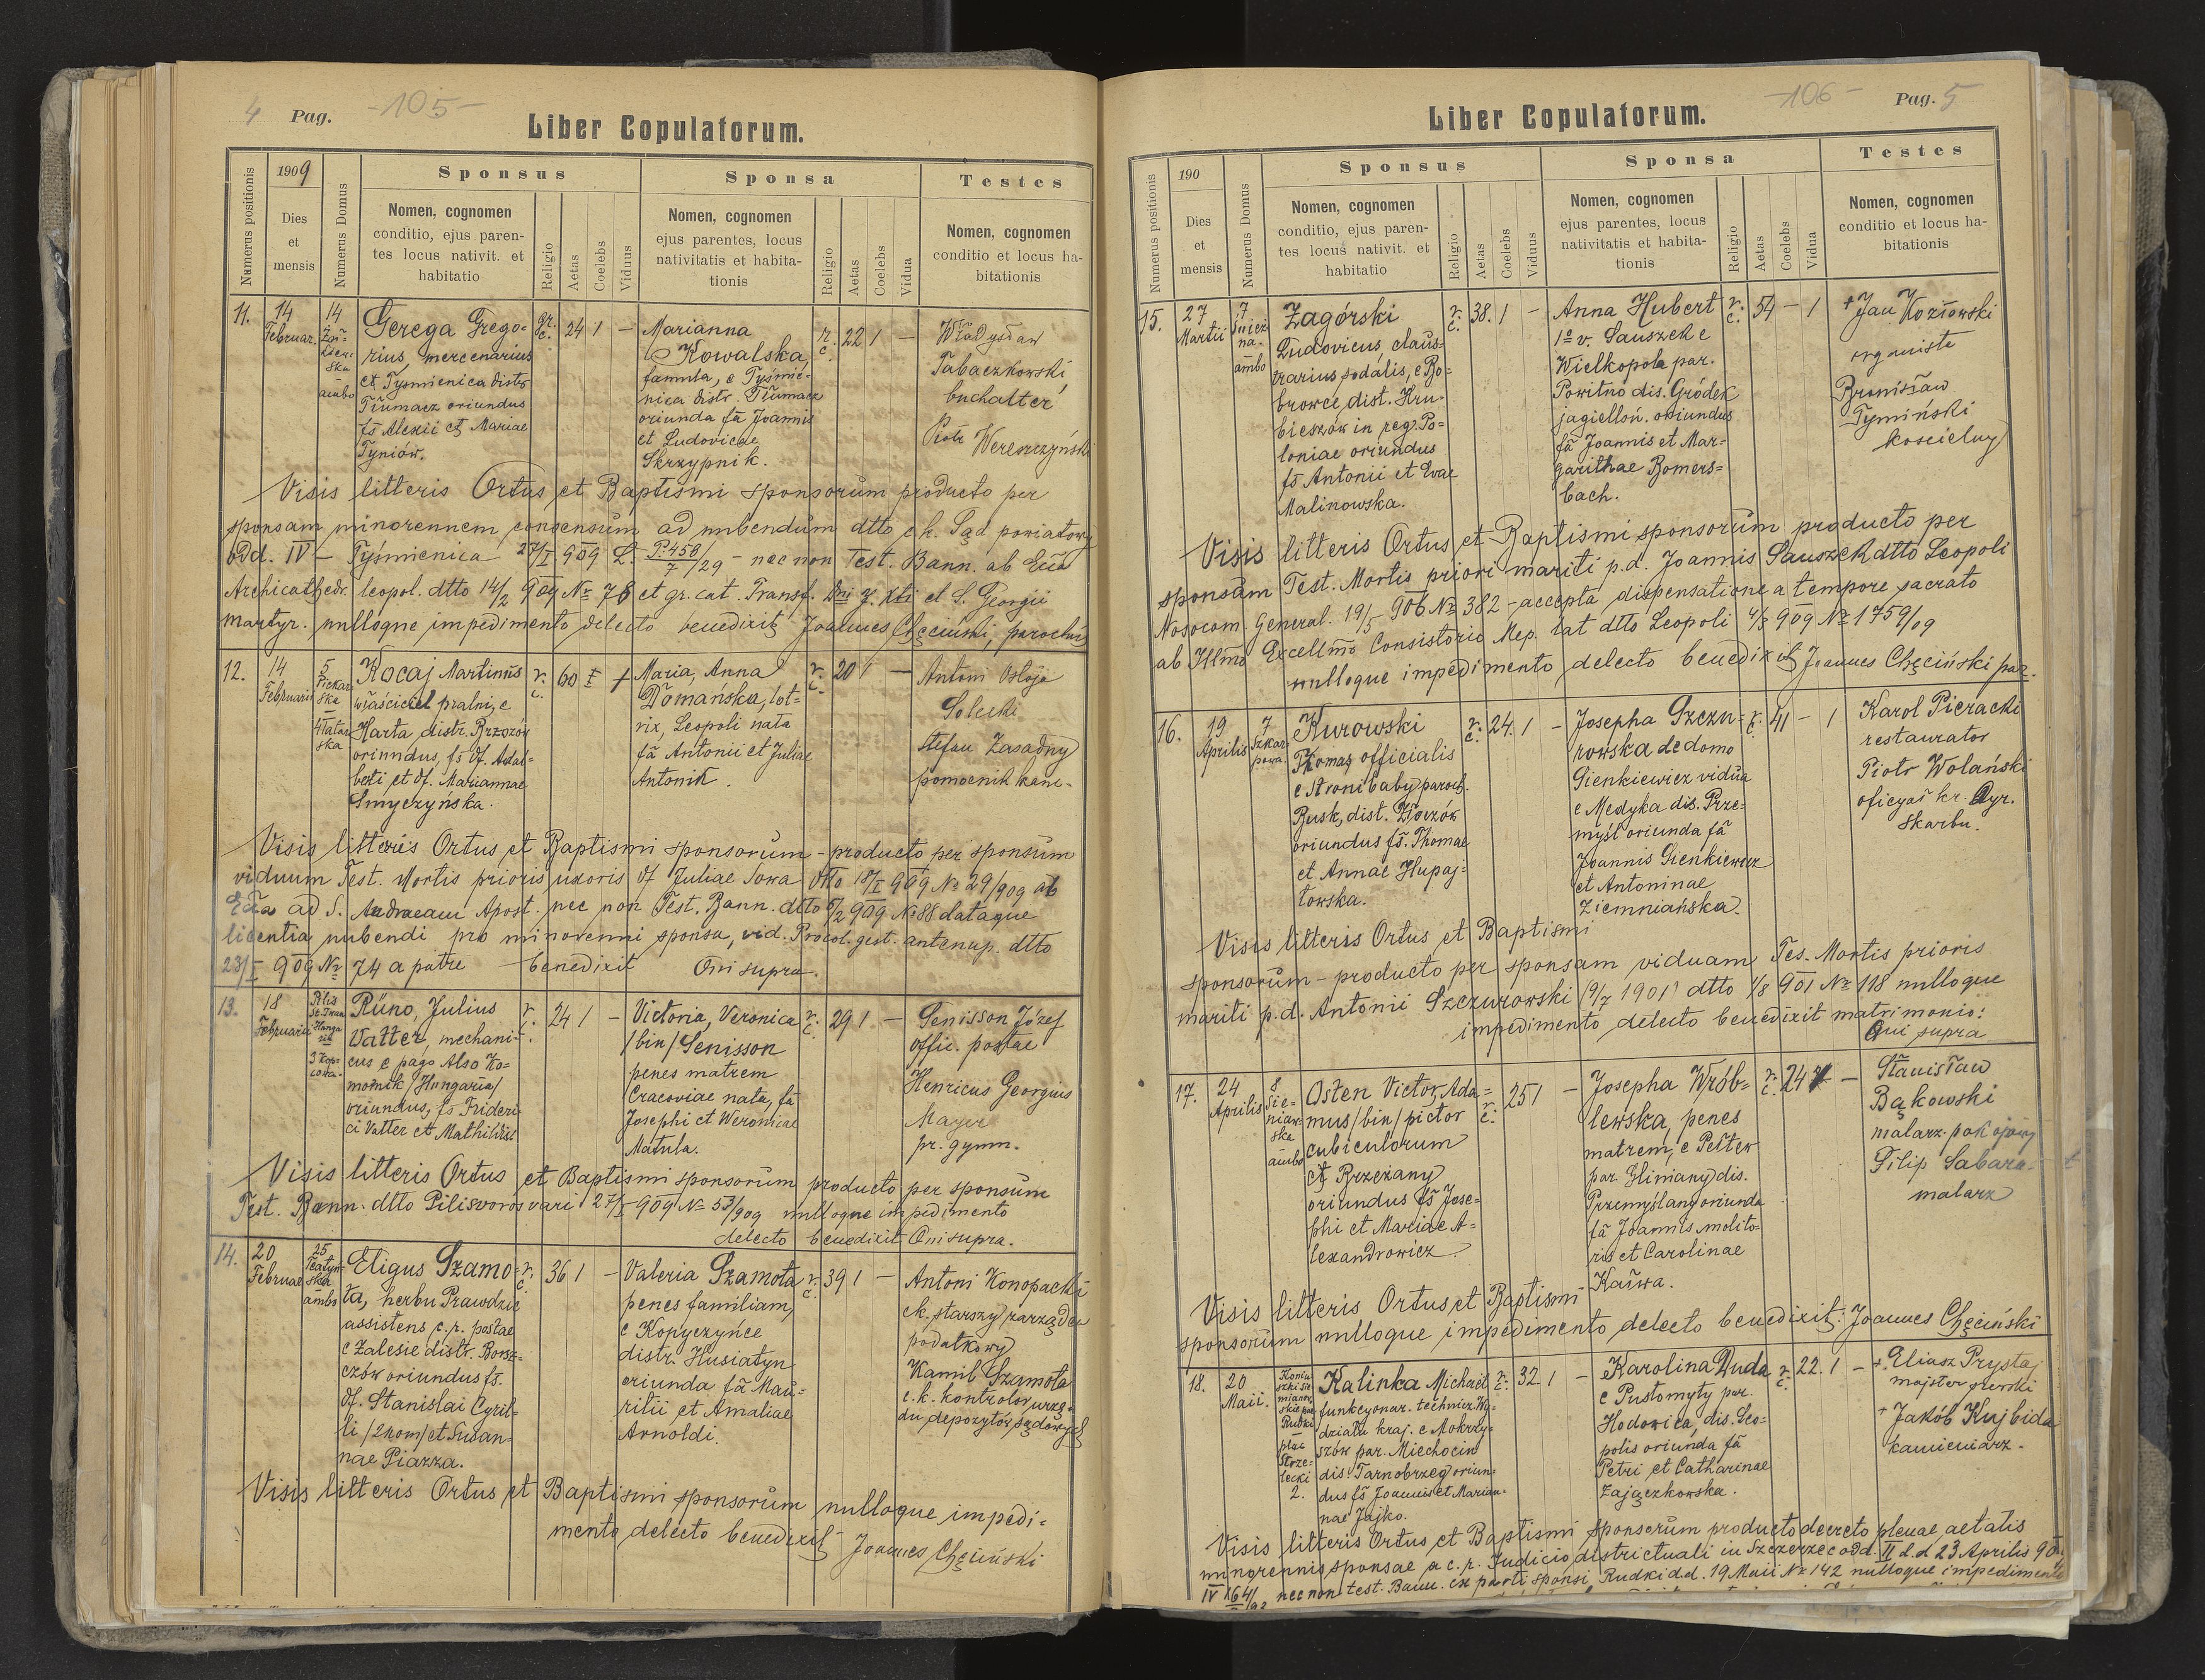 4 Pag. -105-
Liber Copulatorum.
Numerus positionis
1909
Dies
et
mensis
Numerus Domus
Sponsus
Nomen, cognomen
conditio, ejus paren-
tes locus nativit. et
habitatio
Religio
Aetas
Coelebs
Viduus
Sponsa
Nomen, cognomen
ejus parentes, locus
nativitatis et habita-
tionis
Religio
Aetas
Coelebs
Vidua
Testes
Nomen, cognomen
conditio et locus ha-
bitationis
11.
14
Februar.
14
ambo
Gerega Grego=
rius, mercenarius
et Tyśmienica distr
Tłumacz oriundus
fs Alexii et Mariae
Tyniów.
gr.
c.
24 1 -
Marianna
Kowalska,
famula, e Tyśmie-
nica distr. Tłumacz
oriunda fa Joannis
et Ludovicae
Skrzypnik.
r.
c.
22 1 -
Władysław
Tabaczkowski
buchalter
Piotr Werenczyński
Visis litteris Ortus et Baptismi sponsorum producto per
sponsam minorennem consensum ad nubendum dtto ck. Sąd powiatowy
Odd. IV - Tyśmienica 27/I 909 L. P.458/7/29 - nec non Test. Bann. ab Ecia
Archicathedr. leopol. dtto 14/2 909 No 76 et gr. cat. Transf. Dni J. Xti et S. Georgii
Martyr. nulloque impedimento delecto benedixit Joannes Chęciński, parochus
12.
14
Februarii
5
Piekar
ska
4 Tatar
ska
Kocaj Martinus
właściciel pralni, e
Harta, distr. Brzozów
oriundus, fs df. Adal=
berti et df. Mariannae
Smyczyńska.
r.
c.
60 I 1
Maria, Anna
Domańska, lot-
rix, Leopoli nata
fa Antonii et Juliae
Antonik.
r.
c.
20 1 -
Antoni Ostoja
Solecki
Stefan Zasadny
pomocnik kanc.
Visis litteris Ortus et Baptismi sponsorum - producto per sponsum
viduum Test. Mortis prioris uxoris df Juliae Sowa dtto 18/I 909 No 29/909 ab
Ecia ad S. Andraeam Apost. nec non Test. Bann. dtto 6/2 909 No 88 dataque
licentia nubendi pro minorenni sponsa, vid. Protol. gest. antenup. dtto
23/I 909 No 74 a patre benedixit Qui supra.
13.
18
Februarii
Pilis
St. Ivan
Hunga
ria
3 Kop=
cowa.
Rüno, Julius
Vatter, mechani-
cus e pago Also Ko=
mornik /Hungaria/
oriundus, fs Frideri-
ci Vatter et Mathildis
r.
c.
24 1 -
Victoria, Veronica
/bin/ Senisson
penes matrem
Cracoviae nata, fa
Josephi et Weronicae
Matula.
r.
c.
29 1 -
Senisson Józef
offic. postae
Henricus Georgius
Mayer
pr. gymn.
Visis litteris Ortus et Baptismi sponsorum producto per sponsum
Test. Bann. dtto Pilisvorosvari 27/I 909 No 53/909 nulloque impedimento
delecto benedixit Qui supra.
14.
20
Februar
25
Teatyn-
ska
ambo
Eligus Szamo=
ta, herbu Prawdzic
assistens c.r. postae
e Zalesie distr. Borsz=
czów oriundus fs.
df. Stanislai Cyril=
li /2nom/ et Susan=
nae Piazza.
r.
c.
36 1 -
Valeria Szamota
penes familiam,
e Kopyczyńce
distr. Husiatyn
oriunda fa Mau=
ritii et Amaliae
Arnoldi.
r.
c.
39 1 -
Antoni Konopacki
ck. starszy zarządca
podatkowy
Kamil Szamota
c. k. kontrolor urzę=
du depozytów sądowych
Visis litteris Ortus et Baptismi sponsorum nulloque impedi=
mento delecto benedixit Joannes Chęciński
-106- Pag. 5
Liber Copulatorum.
Numerus positionis
190
Dies
et
mensis
Numerus Domus
Sponsus
Nomen, cognomen
conditio, ejus paren-
tes locus nativit. et
habitatio
Religio
Aetas
Coelebs
Viduus
Sponsa
Nomen, cognomen
ejus parentes, locus
nativitatis et habita-
tionis
Religio
Aetas
Coelebs
Vidua
Testes
Nomen, cognomen
conditio et locus ha-
bitationis
15.
27
Martii
7
Śnież
na.
ambo
Zagórski
Ludovicus, claus=
trarius sodalis, e Bo=
browce, dist. Hru-
bieszów in reg. Po=
loniae oriundus
fs Antonii et Evae
Malinowska.
r.
c.
38. 1 -
Anna Hubert
1o v. Sauszek e
Wielkopole par.
Powitno dis. Gródek
jagielloń. oriundus
fa Joannis et Mar=
garithae Bomers=
bach.
r.
c.
54 - 1
+ Jan Kozłowski
organista
Bronisław
Tymiński
kościelny
Visis litteris Ortus et Baptismi sponsorum producto per
sponsam Test. Mortis priori mariti p.d. Joannis Sauszek dtto Leopoli
Nosocom. General. 19/5 906 No 382 - accepta dispensatione a tempore sacrato
ab Illmo Excellmo Consistorio Mep. lat dtto Leopoli 4/3 909 No 1759/09
nulloque impedimento delecto benedixit Joannes Chęciński par.
16.
19
Aprilis
7
Szkar
powa.
Kurowski
Thomas, officialis
e Stronibaby paroch.
Busk, dist. Złoczów
oriundus fs. Thomae
et Annae Hupaj=
towska.
r.
c.
24. 1 -
Josepha Szczu=
rowska de domo
Sienkiewicz vidua
e Medyka dis. Prze=
myśl oriunda fa
Joannis Sienkiewicz
et Antoninae
Ziemniańska.
r.
c.
41 - 1
Karol Pieracki
restaurator
Piotr Wolański
oficyał kr. Dyr.
Skarbu.
Visis litteris Ortus et Baptismi
sponsorum - producto per sponsam viduam Tes. Mortis prioris
mariti p.d. Antonii Szczurowski (9/7 1901) dtto 1/8 901 No 118 nulloque
impedimento delecto benedixit matrimonio:
Qui supra
17.
24
Aprilis
8
Sie=
niaw=
ska
ambo
Osten Victor, Ada=
mus /bin/ pictor
cubiculorum
et Brzeżany
oriundus fs Jose=
phi et Mariae A=
lexandrowicz
r.
c.
25 1 -
Josepha Wrób=
lewska, penes
matrem, e Pełtew
par. Gliniany dis.
Przemyślany oriunda
fa Joannis molito=
ris et Carolinae
Kaŭwa.
r.
c.
24 1 -
Stanisław
Bąkowski
malarz pokojowy
Filip Sabara
malarz
Visis litteris Ortus et Baptismi
sponsorum nulloque impedimento delecto benedixit: Joannes Chęciński
18.
20
Maii.
Rudki
plac
Strze=
lecki
2.
Kalinka Michael
funkcyonar. techniczn. Wy=
działu kraj. e Mokrzy=
szów par. Miechocin
dis. Tarnobrzeg oriun=
dus fs Joannis et Marian-
nae Jajko.
r.
c.
32 1 -
Karolina Duda
e Pustomyty par.
Hodowica, dis. Leo=
polis oriunda fa
Petri et Catharinae
Zajączkowska.
r.
c.
22. 1 -
+. Eliasz Prystaj
majster szewski
+ Jakób Kujbida
kamieniarz.
Visis litteris Ortus et Baptismi sponsorum producto decreto plenae aetatis
minorennis sponsae a c. r. Judicio districtuali in Szczerzec odd. II d.d 23 Aprilis 909
IV 164/92 nec non test. Bann. ex parti sponsi Rudki dd. 19 Maii No 142 nulloque impedimento